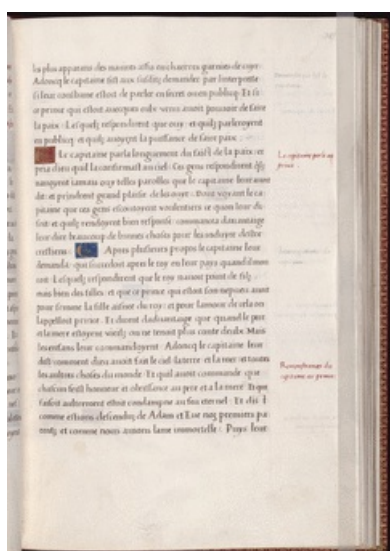 les plus apparens des maures assis en chaerres garnies de cuyr
Adoncq le capitaine fist aux susditz demander par linterprete
si leur coustume estoit de parler en secret ou en publicq Et si
ce prince qui estoit avecques eulx venu avoit pouvoir de faire
la paix Lesquelz respondirent que ouy et quilz parleroyent
en publicq et quilz avoyent la puissance de faire paix
Le capitaine parla longuement du faict de la paix et
pria dieu quil la confirmast au ciel Ces gens respondirent
navoyent jamais ouy telles parolles que le capitaine leur avoit
dit et prindrent grand plaisir de les ouyr Doncq voyant le ca
pitaine que ces gens escoutoyent voulentiers ce quon leur di
soit et quilz rendoyent bien response commenca davantage
leur dire beaucoup de bonnes choses pour les induyre destre
crestiens Apres plusieurs propos le capitaine leur
demanda qui succedoit apres le roy en leur pays quand il mou
roit Lesquelz respondirent que le roy navoit point de filz
mais bien des filles et que ce prince qui estoit son nepveu avoit
pour femme la fille aisnee du roy et pour lamour de cela on
lappelloit prince Et dirent dadvantage que quand le pere
et la mere estoyent vieulx on ne tenoit plus conte deulx Mais
les enfans leur commandoyent Adoncq le capitaine leur
dist comment dieu avoit fait le ciel la terre et la mer et toutes
les aultres choses du monde Et quil avoit commande que
chascun feist honneur et obeissance au pere et a la mere Et qui
faisoit aultrement estoit condampne au feu eternel Et dist
comme estions descenduz de Adam et Eve noz premiers pa
rentz et comme nous avions lame immortelle Puys leur
Le capitaine parle au
prince
Remonstrance du
capitaine au prince